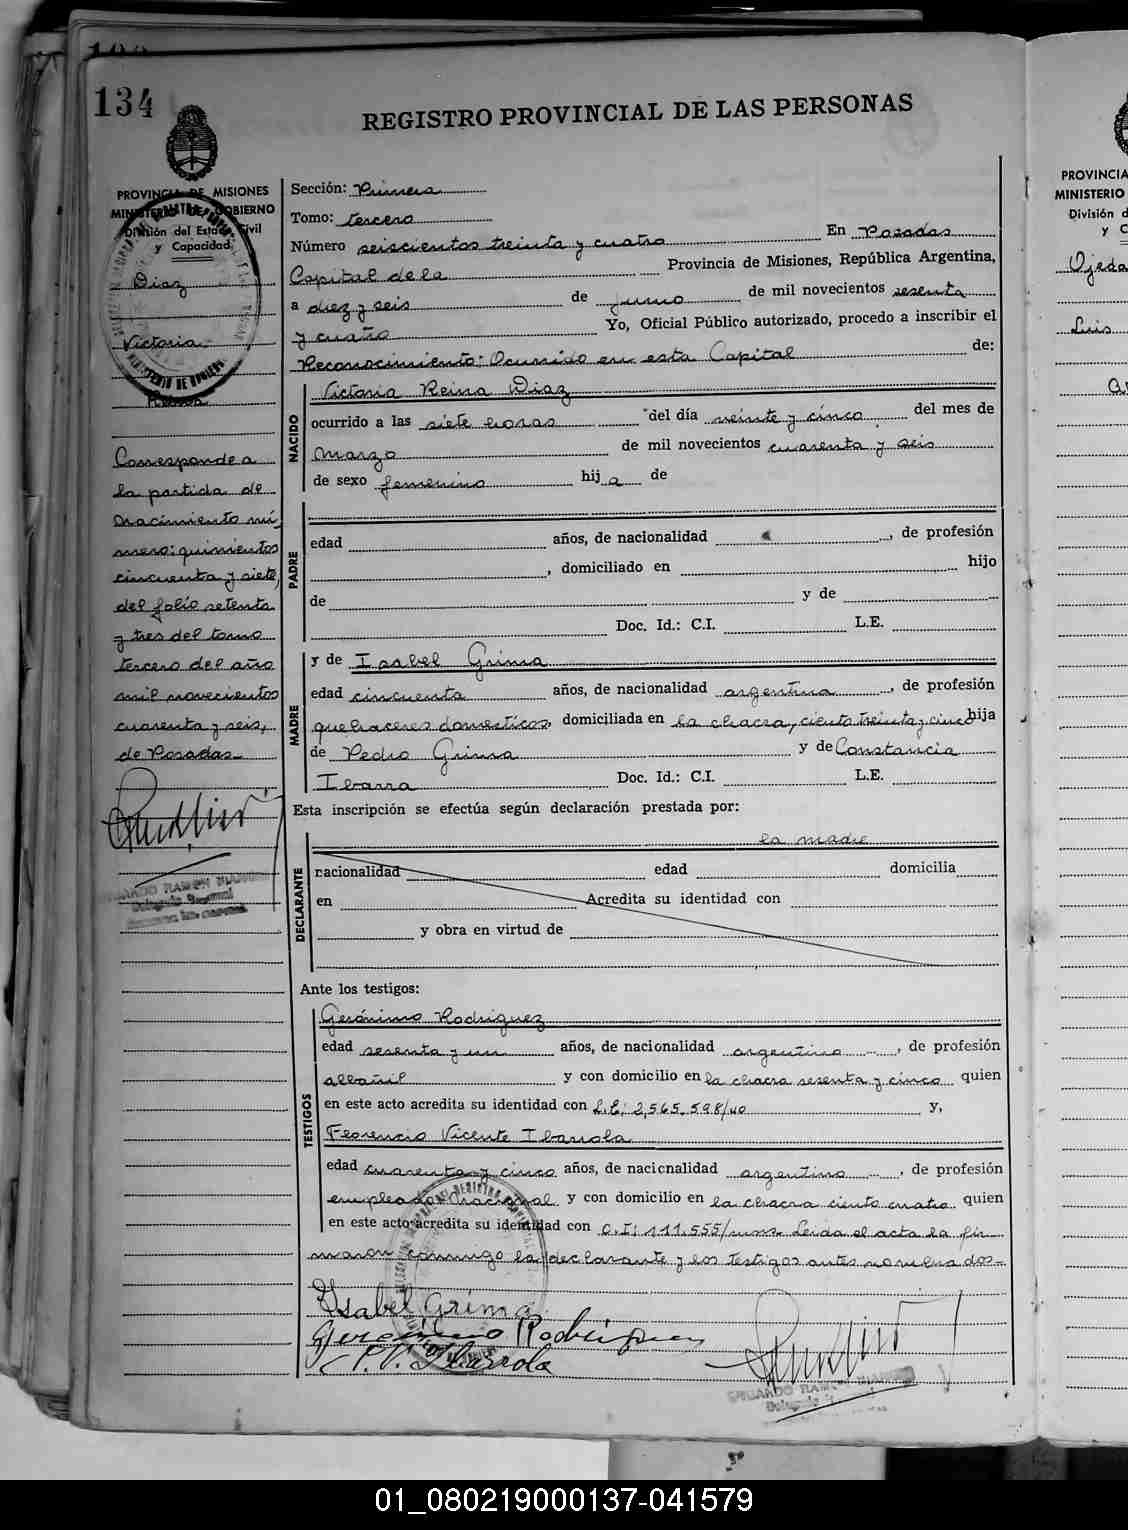 134
REGISTRO PROVINCIAL DE LAS PERSONAS
PROVINCIA DE MISIONES
MINISTERIO DE GOBIERNO
División del Estado Civil
y Capacidad
Diaz
Victoria
Reina
Corresponde a
la partida de
nacimiento nú-
mero: quinientos
cincuenta y siete,
del folio setenta
y tres del tomo
tercero del año
mil novecientos
cuarenta y seis,
de Posadas.
Sección: Primera
Tomo: tercero
Número seiscientos treinta y cuatro En Posadas
Capital de la Provincia de Misiones, República Argentina,
a diez y seis de junio de mil novecientos sesenta
y cuatro Yo, Oficial Público autorizado, procedo a inscribir el
Reconocimiento: Ocurrido en esta Capital de:
NACIDO
Victoria Reina Diaz
ocurrido a las siete horas del día veinte y cinco del mes de
Marzo de mil novecientos cuarenta y seis
de sexo femenino hija de
PADRE
edad años, de nacionalidad , de profesión
, domiciliado en hijo
de y de
Doc. Id.: C.I. L.E.
MADRE
y de Isabel Grima
edad cincuenta años, de nacionalidad argentina, de profesión
quehaceres domesticos, domiciliada en la chacra, ciento treinta y cinco hija
de Pedro Grima y de Constancia
Ibarra Doc. Id.: C.I. L.E.
Esta inscripción se efectúa según declaración prestada por:
la madre
DECLARANTE
nacionalidad edad domicilia
en Acredita su identidad con
y obra en virtud de
Ante los testigos:
TESTIGOS
Gerónimo Rodriguez
edad sesenta y un años, de nacionalidad argentino, de profesión
albañil y con domicilio en la chacra sesenta y cinco quien
en este acto acredita su identidad con L.E: 2,565.598/ y,
Florencio Vicente Ibarrola
edad cuarenta y cinco años, de nacionalidad argentino, de profesión
empleado nacional y con domicilio en la chacra ciento cuatro quien
en este acto acredita su identidad con C.I: 111.555/ Leida el acta la fir-
maron conmigo la declarante y los testigos antes nombrados-
Isabel Grima
Gerónimo Rodriguez
F.V. Ibarrola
RAMON
PROVINCIA
MINISTERIO
División d
y C
Ojeda
Luis
01_080219000137-041579